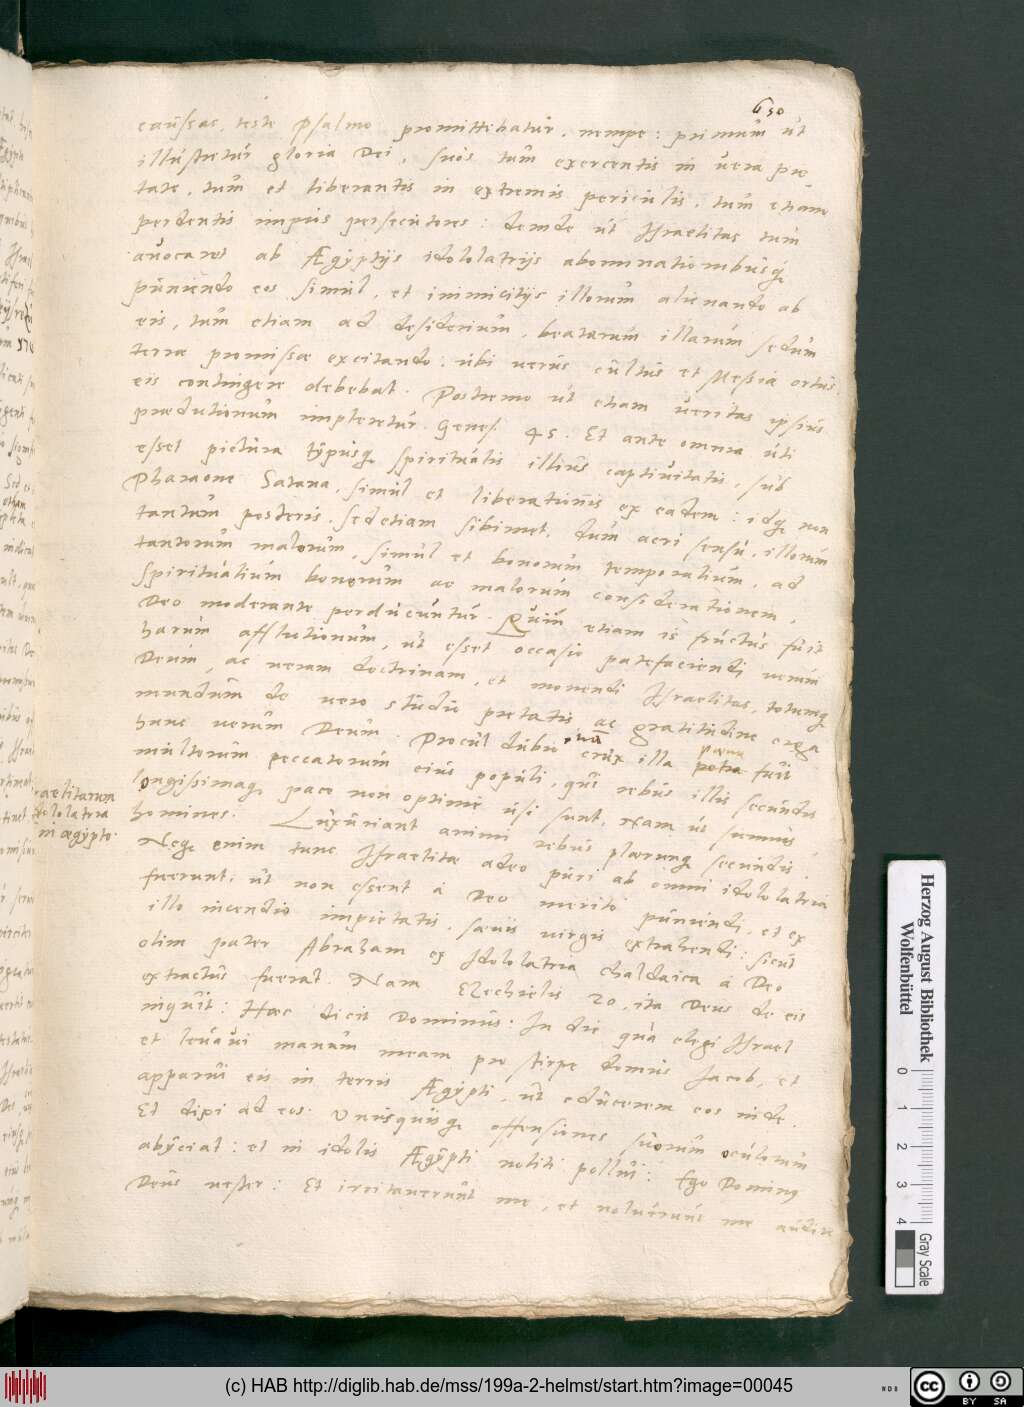 650
caussas, teste Psalmo promittebatur. nempe: primum ut
illustretur gloria Dei, suos tum exercentis in vera pie
tate, tum et liberantis in extremis periculis, tum etiam
perdentis impios persecutores: deinde ut Israelitas tum
avocaret ab Ægyptijs idololatrijs abominationibusq́
puniendo eos simul, et inimicitijs illorum alienando ab
eis, tum etiam ad desiderium, beatarum illarum sedum
terræ promissæ excitando: ubi verus cultus et Messiæ ortus
eis contingere debebat. Postremo ut etiam veritas ipsius
prædictionum impleretur. Genes 45. Et ante omnia uti
esset pictura typusq́ spiritualis illius captivitatis, sub
Pharaone Satana, simul et liberationis ex eadem: idq́ non
tantum posteris, sed etiam sibimet, dum acri sensu, illorum
tantorum malorum, simul et bonorum temporalium, ad
spiritualium bonorum ac malorum considerationem,
Deo moderante perducuntur. Quin etiam is fructus fuit
harum afflictionum, ut esset occasio patefaciendi verum
Deum, ac veram doctrinam, et monendi Israelitas, totumq́
mundum de vero studio pietatis ac gratitudine erga
hunc verum Deum. Procul dubio crux illa poena petra fuit
multorum peccatorum eius populi, qui rebus illis secundis
longissimaq́ pace non optime usi sunt. Nam ut sumus
homines: Luxuriant animi rebus plerunq́ secundis.
Israelitarum
idololatria
in ægypto.
Neq́ enim tunc Israelitæ adeo puri ab omni idololatria
fuerunt, ut non essent à Deo merito puniendi, et ex
illo incendio impietatis, sævis virgis extrahendi: sicut
olim pater Abraham ex Idololatria Chaldaica à Deo
extractus fuerat. Nam Ezechielis 20, ita Deus de eis
inquit: Hæc dicit Dominus: In die qua elegi Israel
et levavi manum meam pro stirpe domus Jacob, et
apparui eis in terris Ægypti, ut educerem eos inde.
Et dixi ad eos: Unusquisq́ offensiones suorum oculorum
abijciat: et in idolis Ægypti noliti pollui: Ego Dominus
Deus vester: Et irritaverunt me, et noluerunt me audire
Herzog August Bibliothek
Wolfenbüttel
0 1 2 3 4
Gray Scale
(c) HAB http://diglib.hab.de/mss/199a-2-helmst/start.htm?image=00045
cc BY SA